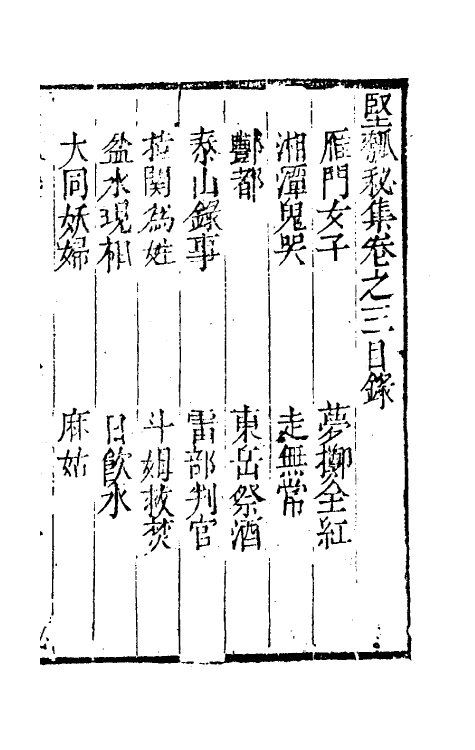 堅瓠秘集卷之三目錄
雁門女子　夢擲全紅
湘潭鬼哭　走無常
酆都　東岳祭酒
泰山錄事　雷部判官
指關為姓　斗姆救焚
盆水現相　日飲水
大同妖婦　麻姑